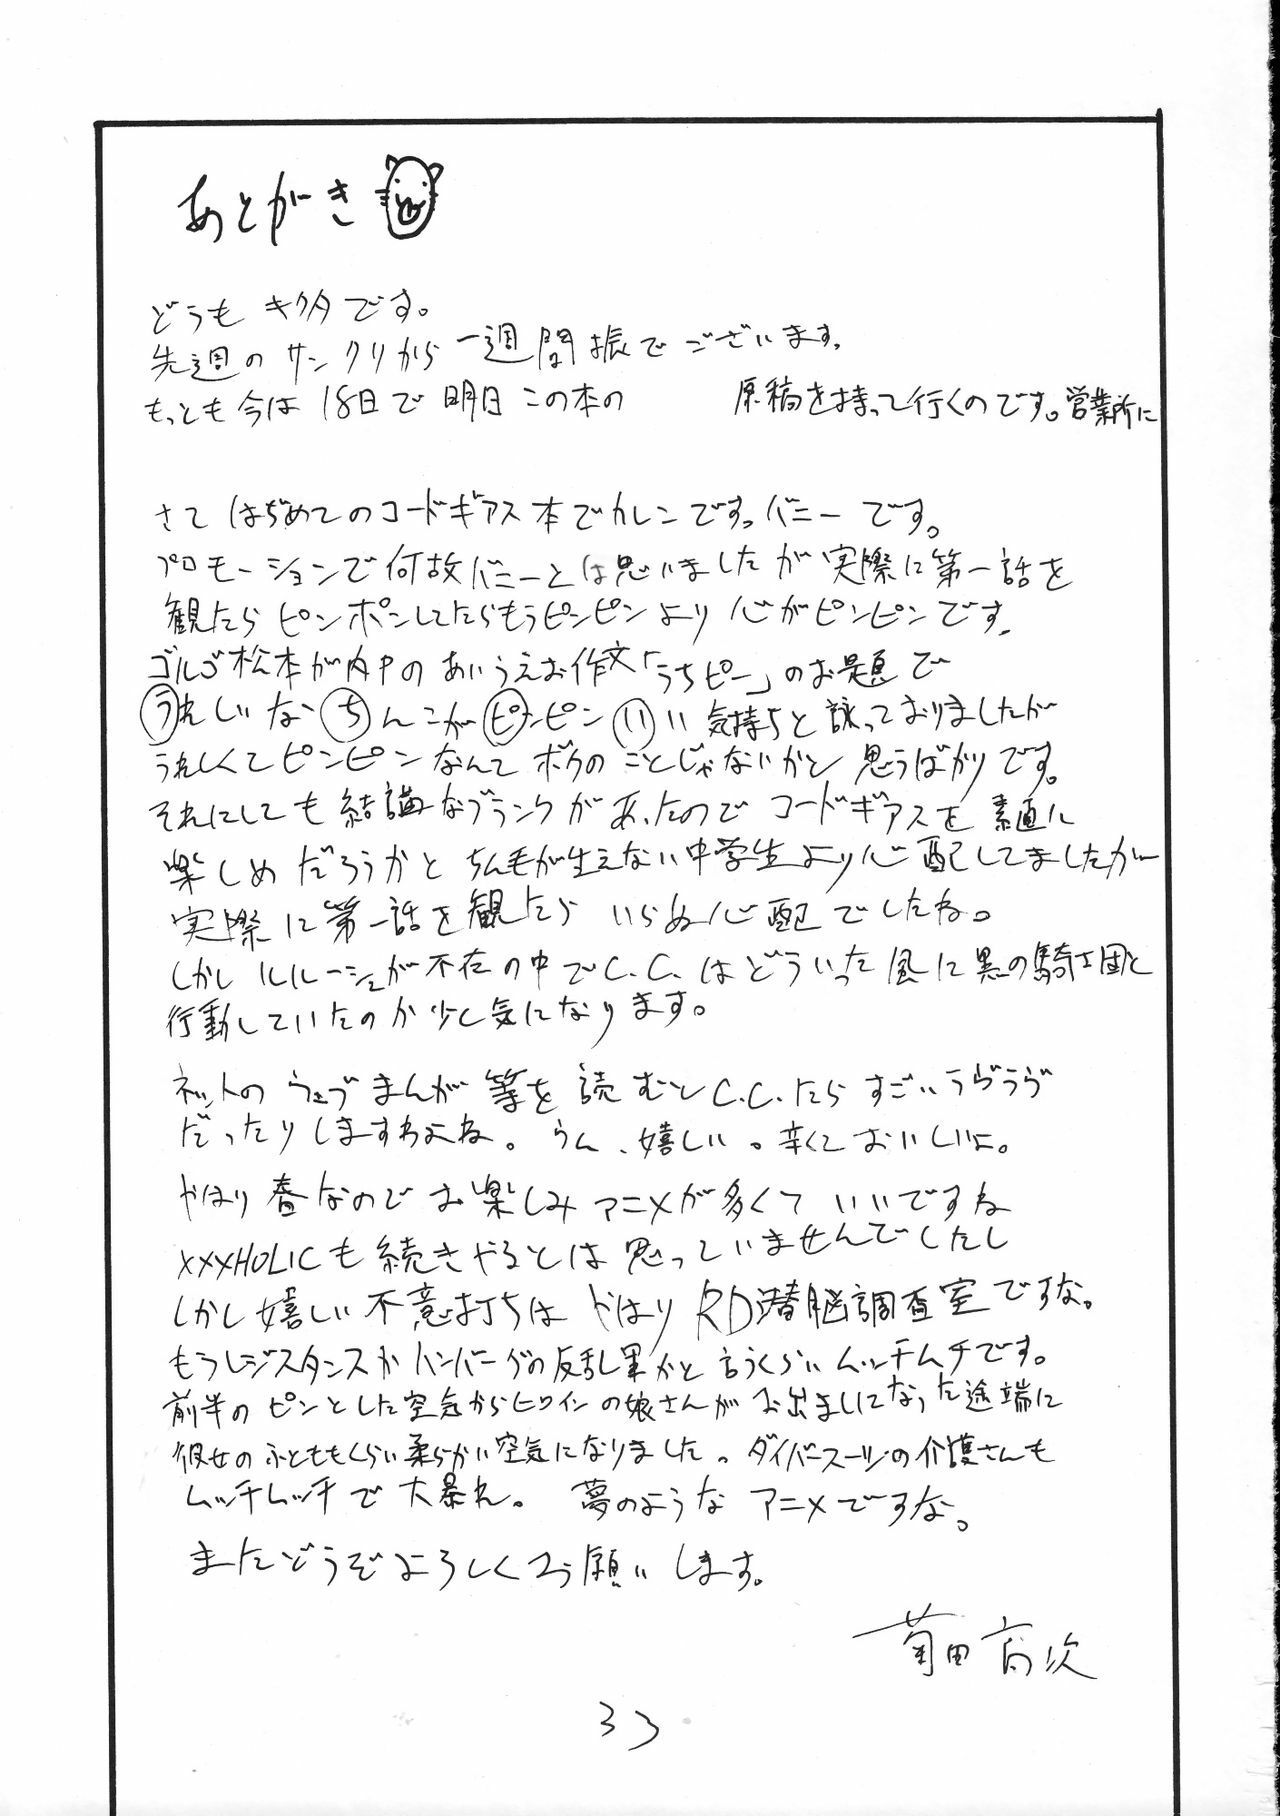 あとがき
どうも キクタです。
先週の サンクリから 一週間振でございます。
もっとも今は 18日で 明日 この本の 原稿を持って行くのです。営業所に
さて はぢめてのコードギアス本でカレンです。バニーです。
プロモーションで何故バニーとは思いましたが実際に第一話を
観たらピンポンしてたらもうピンピンより心がピンピンです。
ゴルゴ松本が内Pの あいうえお作文「うちピー」のお題で
うれしいな ちんこがピンピン いい気持ちと詠っておりましたが
うれしくてピンピンなんて ボクのことじゃないかと 思うばかりです。
それにしても結構なブランクがあったので コードギアスを 素直に
楽しめだろうかと ちん毛が生えない中学生より心配してましたが
実際に第一話を観たら いらぬ心配でしたね。
しかしルルーシュが不在の中でC.C.はどういった風に黒の騎士団と
行動していたのか少し気になります。
ネットの ウェブまんが等を読むとC.C.たら すごいラヴラヴ
だったりしますわよね。うん、嬉しい。辛くておいしいよ。
やはり春なのでお楽しみアニメが多くて いいですね
xxxHOLICも続きやるとは思っていませんでしたし
しかし嬉しい不意打ちは やはり RD潜脳調査室ですな。
もうレジスタンスかハンバーグの反乱軍かと言うくらいムッチムチです。
前半の ピンとした空気からヒロインの娘さんが お出ましになった途端に
彼女のふとももくらい柔らかい空気になりました。ダイバースーツの介護さんも
ムッチムッチで大暴れ。 夢のような アニメですな。
またどうぞよろしくお願いします。
菊田高次
33